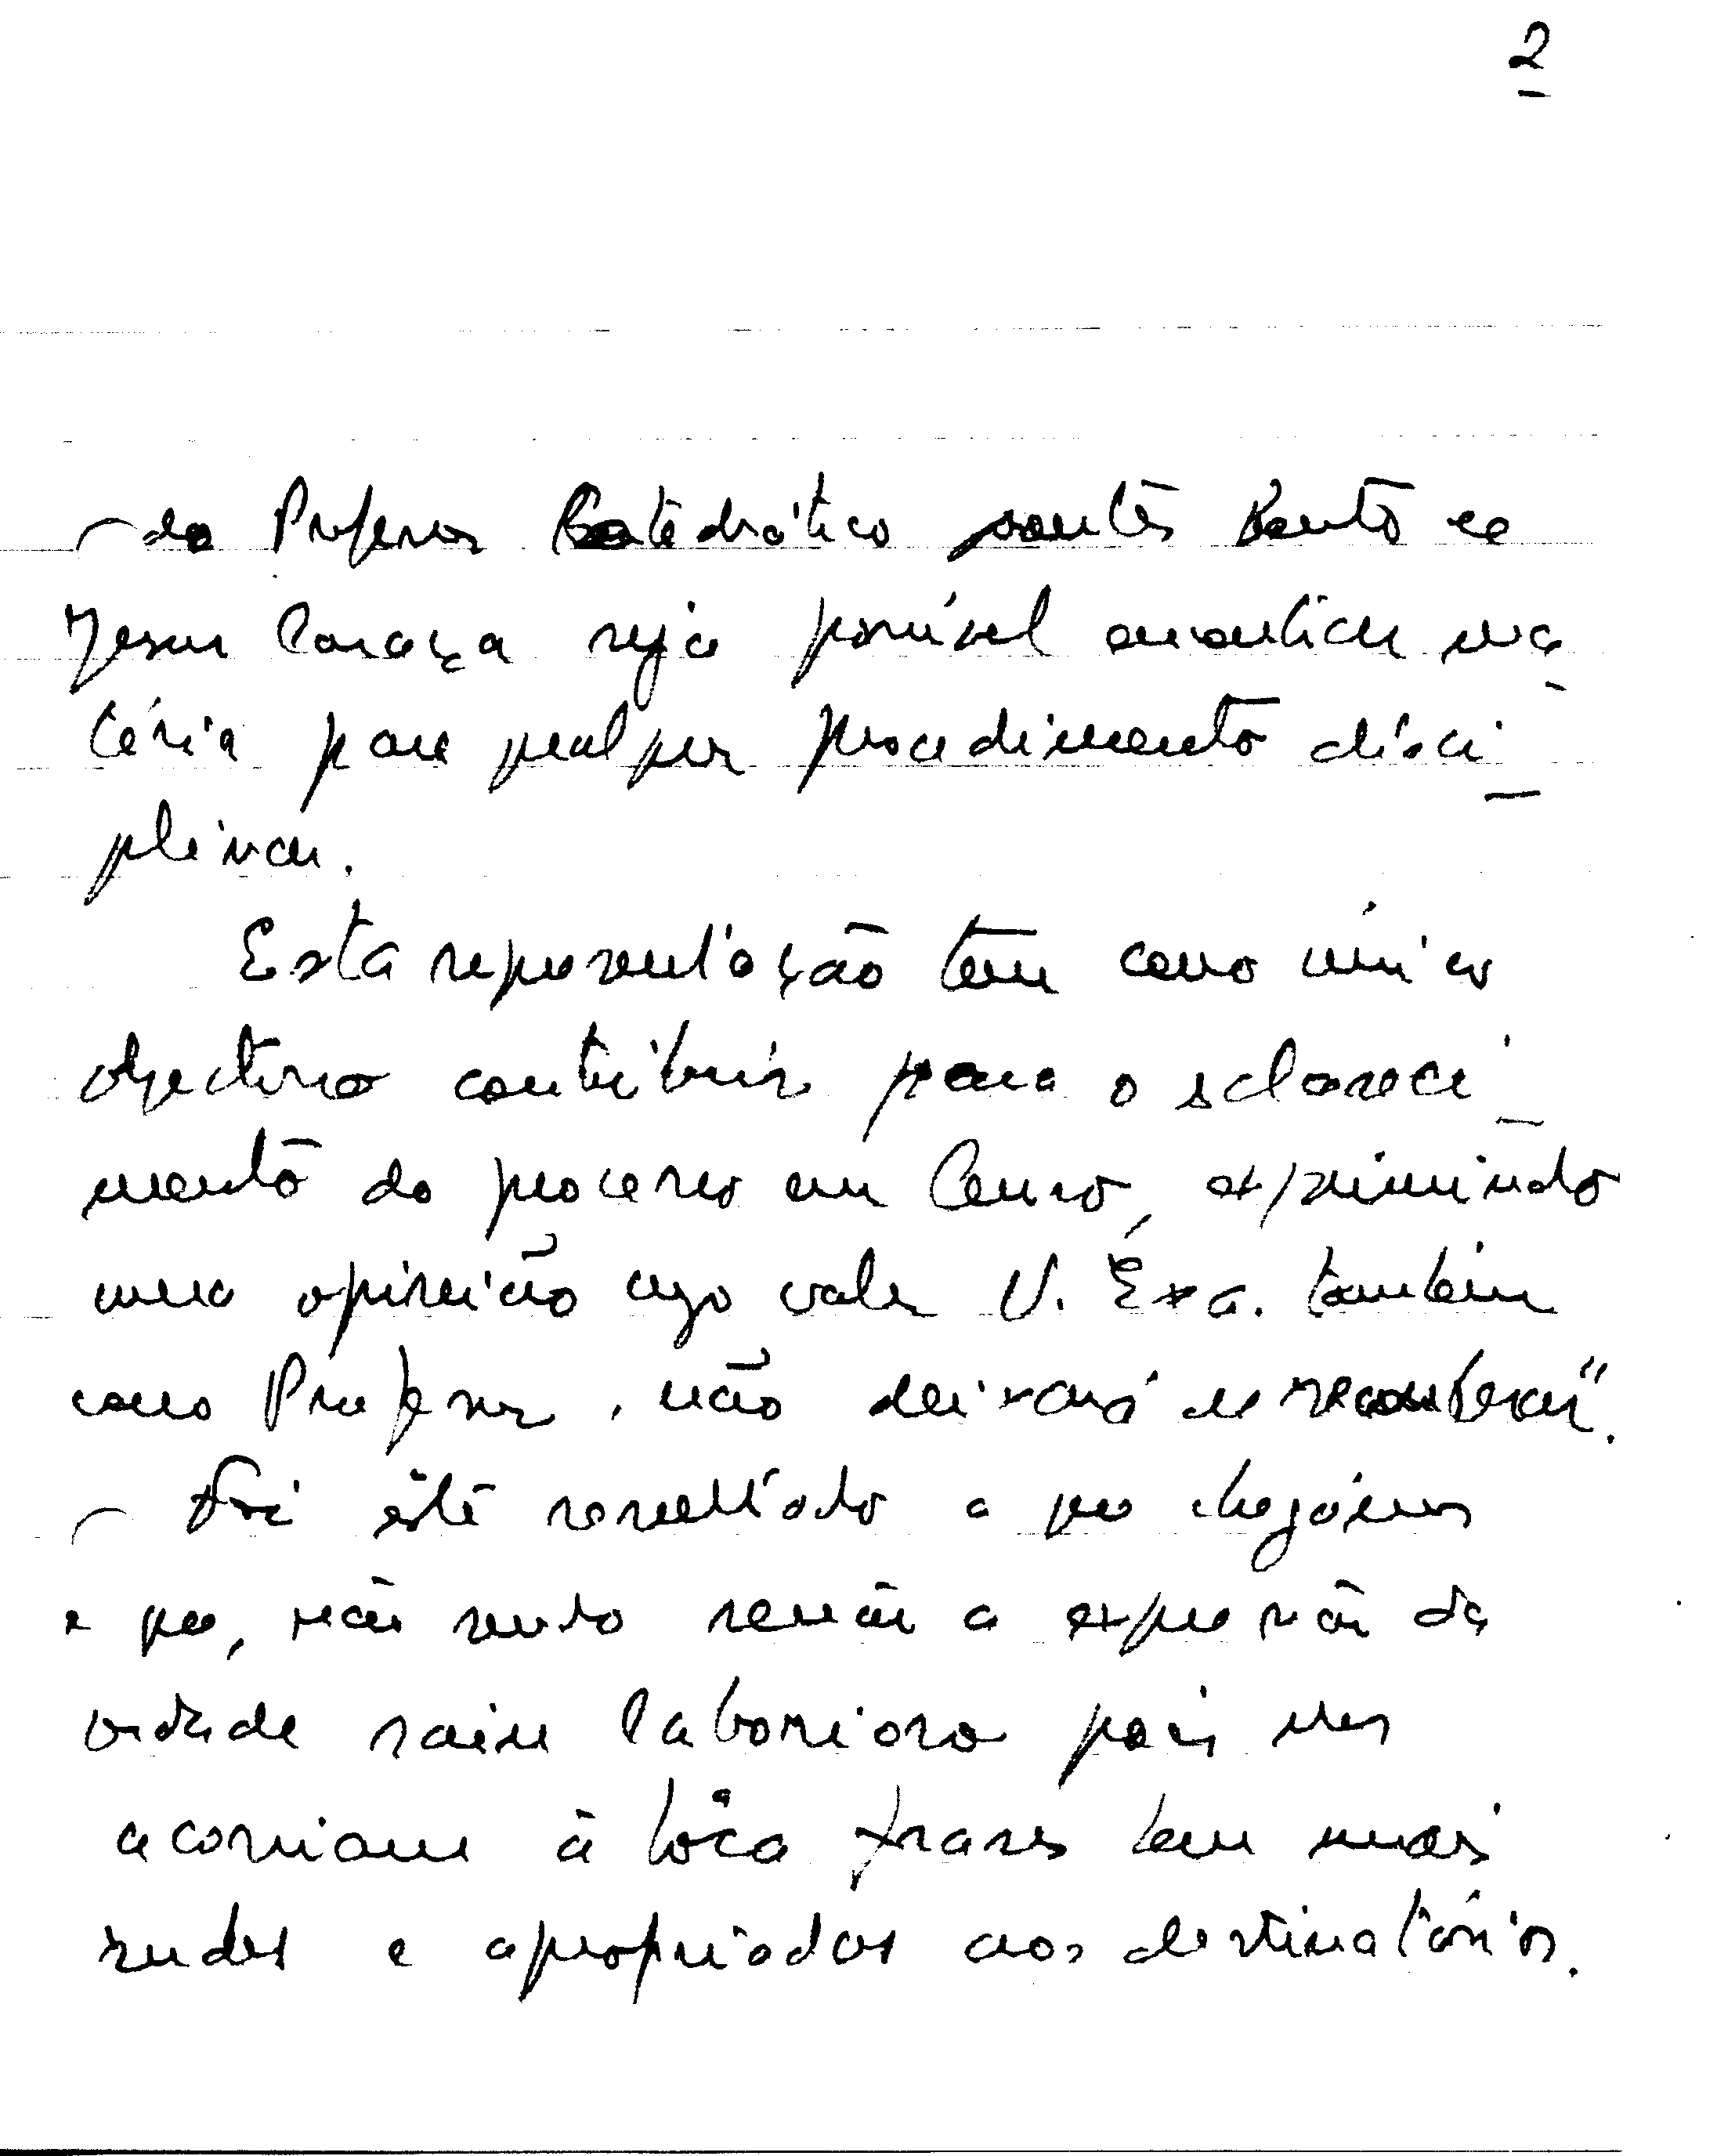 2
do Professor Catedrático doutor Bento de
Jesus Caraça seja possível encontrar ma-
téria para qualquer procedimento disci-
plinar.
Esta representação tem como único
objectivo contribuir para o esclareci-
mento do processo em curso, exprimindo
uma opinião cujo valor V. Exa. também
como Professor, não deixará de reconhecer".
- Foi êste resultado a que chegámos
e que, não sendo senão a expressão da
verdade saiu laboriosa pois nos
acorriam à bôca frases bem mais
rudes e apropriadas aos destinatários.